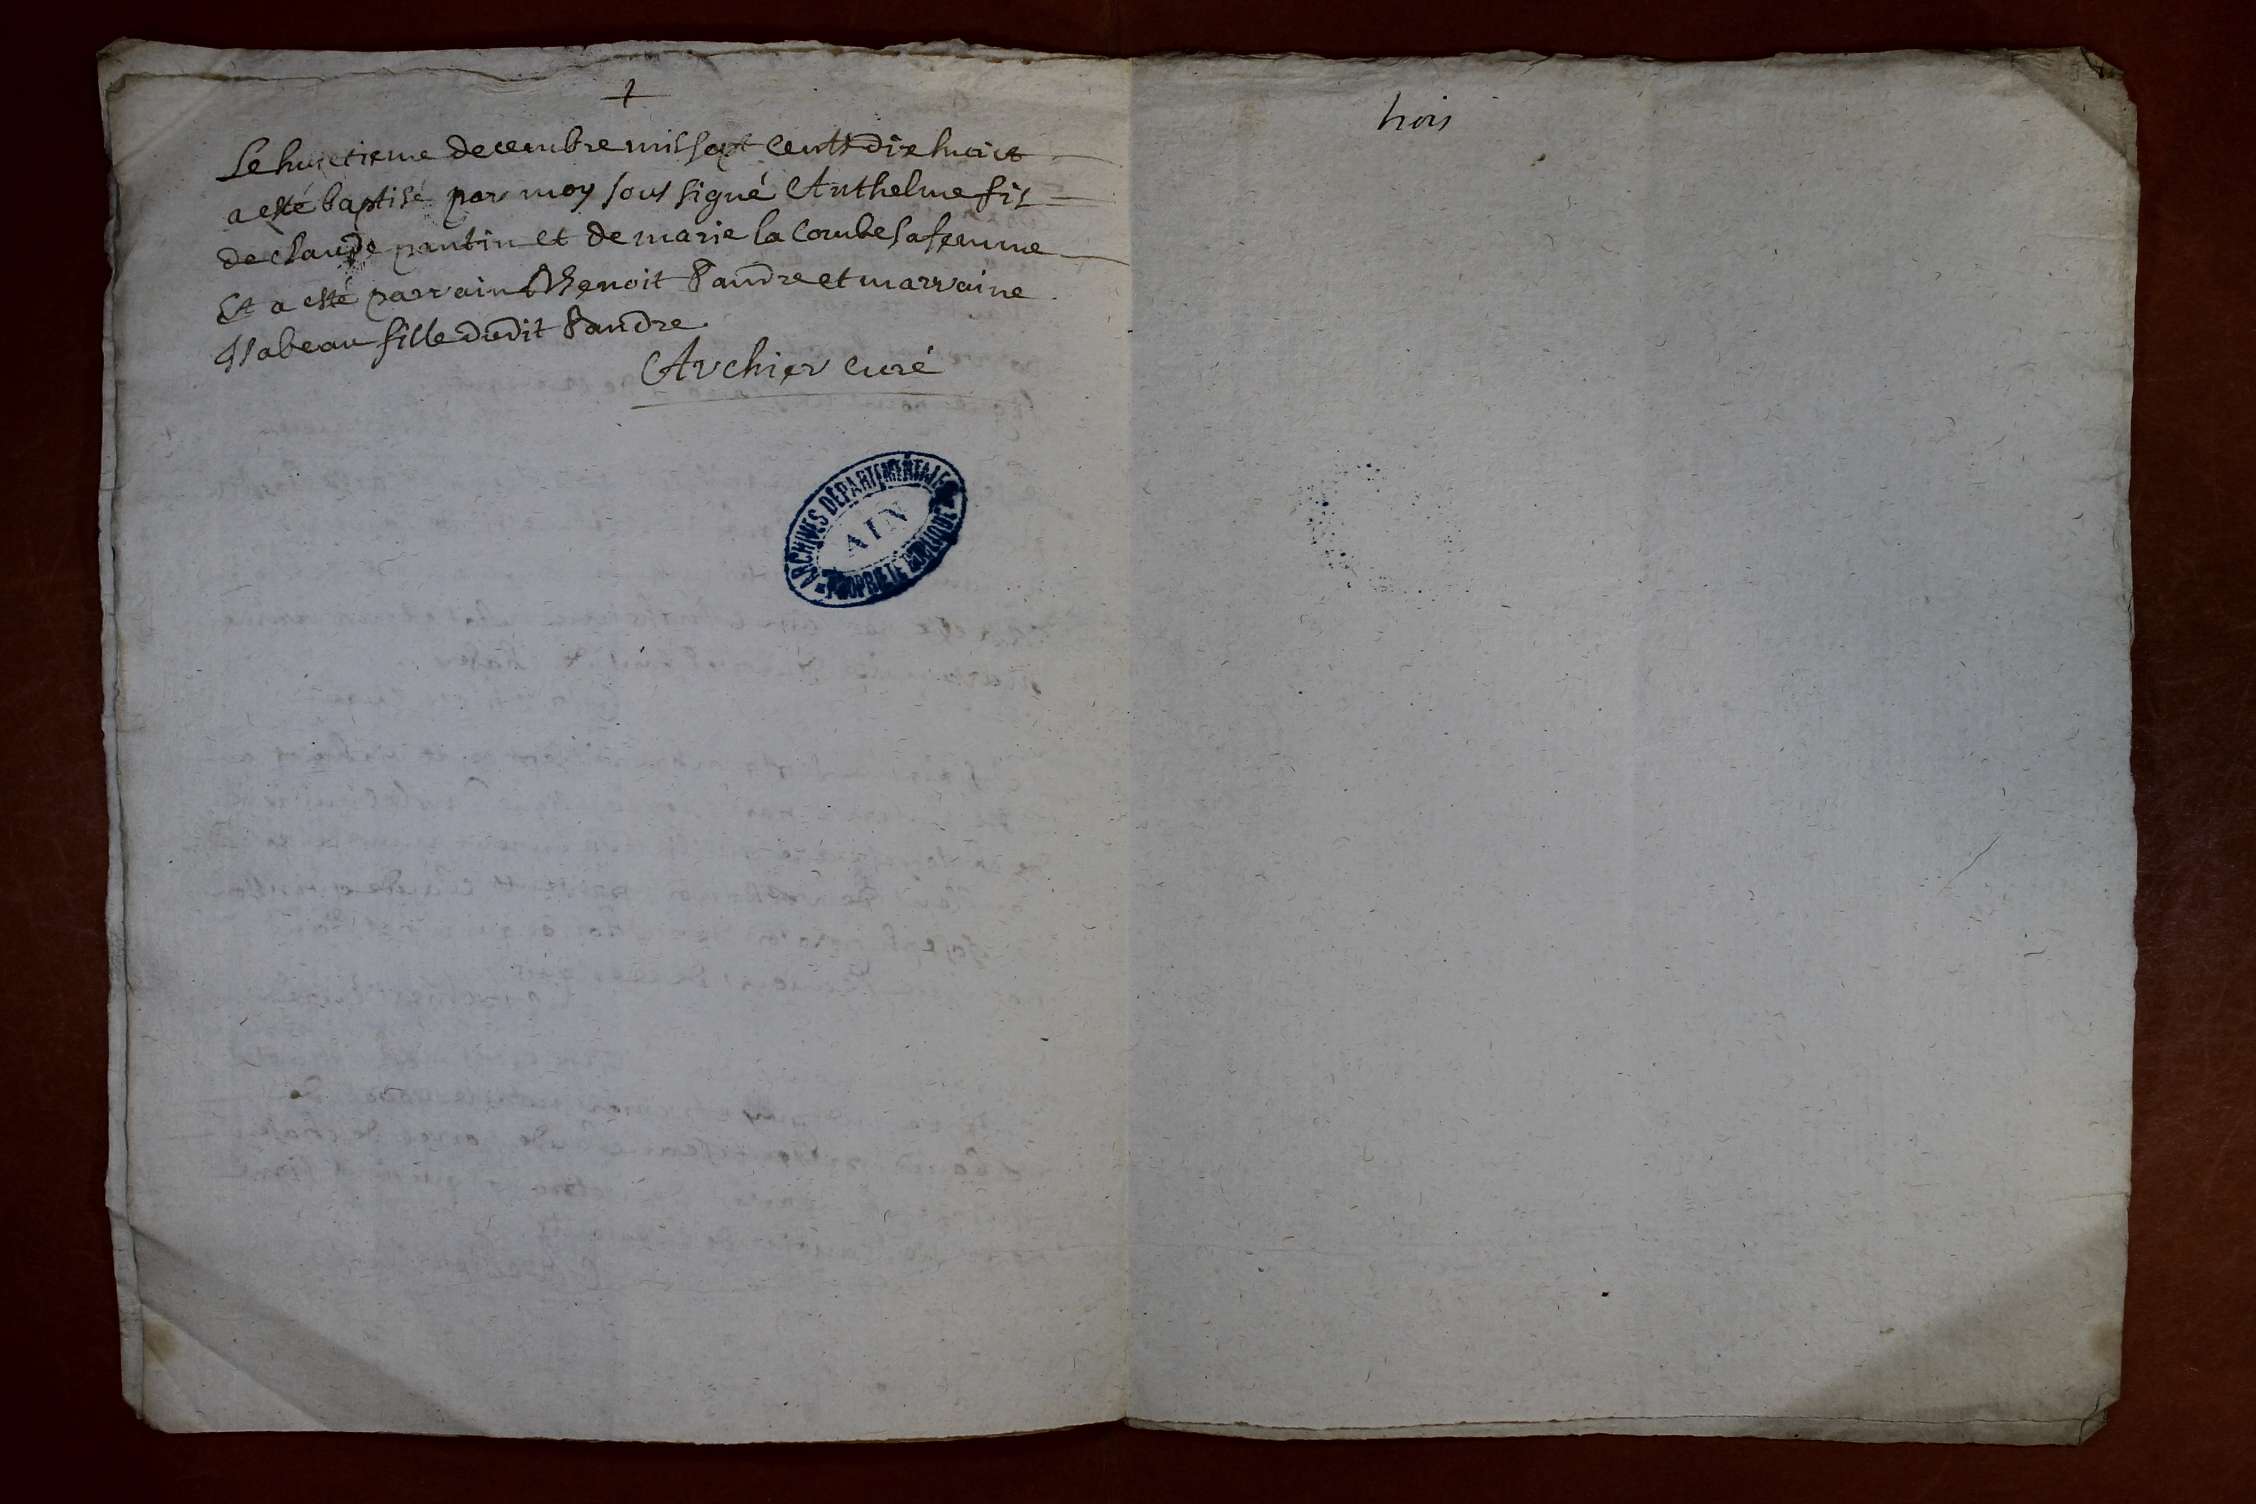 Le huictieme decembre mil sept cents dix huict
a esté baptisé par moy sous signé Anthelme fils
de claude pantin et de marie la Combe sa femme
Et a esté parrain Benoit Pandre et marraine
Isabeau fille dudit Pandre
Archier curé
ARCHIVES DÉPARTEMENTALES
AIN
PROPRIÉTÉ PUBLIQUE
trois